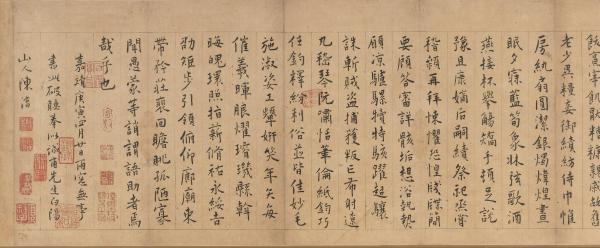 飫烹宰飢厭糟糠親戚故舊
老少異糧妾御績紡侍巾帷
房紈扇圓潔銀燭煒煌晝
眠夕寐藍筍象床弦歌酒
燕接杯舉觴矯手頓足說
豫且康嫡后嗣續祭祀蒸嘗
稽顙再拜悚懼恐惶牋牒簡
要顧答審詳骸垢想浴執熱
願凉驢騾犢特駭躍超驤
誅斬賊盜捕獲叛亡布射遼
丸嵇琴阮嘯恬筆倫紙鈞巧
任釣釋紛利俗並皆佳妙毛
施淑姿工顰妍笑年矢每
催羲暉朗耀璇璣縣斡
晦魄環照指薪脩祜永綏吉
劭矩步引領俯仰廊廟束
帶矜莊裵回瞻眺孤陋寡
聞愚蒙等誚謂語助者焉
哉乎也
嘉靖庚寅四月廿日雨窗無事
書此破睡奉似甫先生白陽
山人陳淳